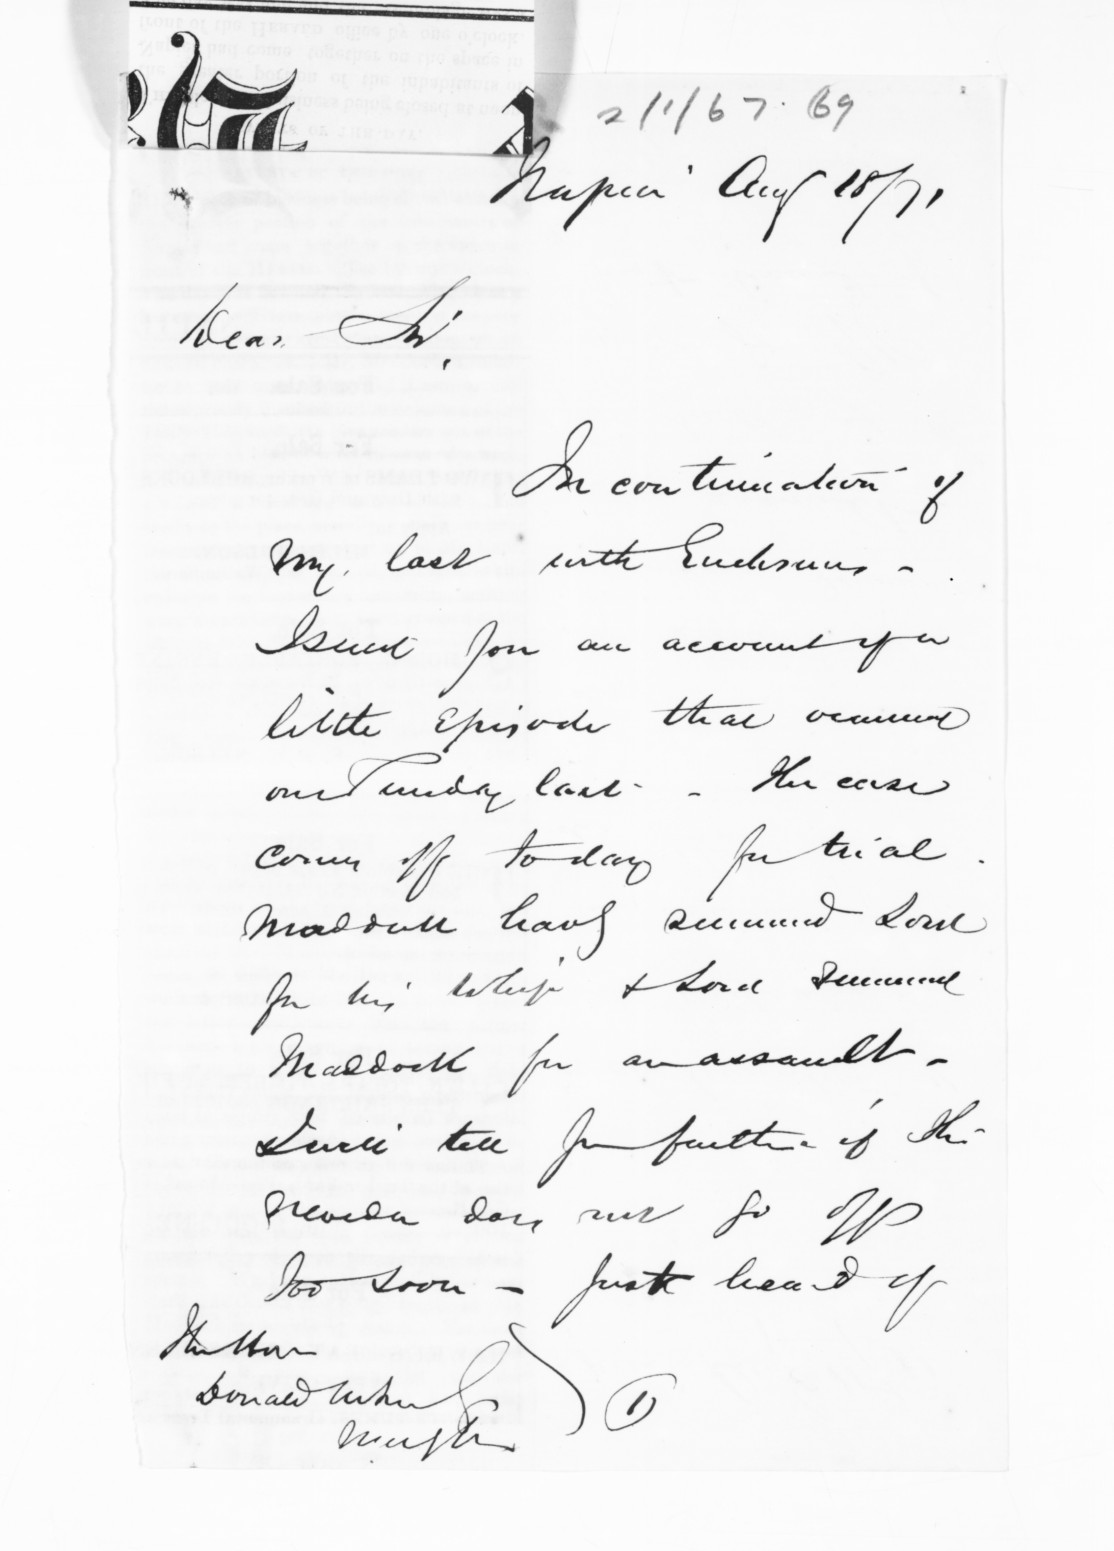 2/1/67. 69
Napier Aug 18/71
Dear Sir,
In continuation of
my last with Enclosures -
I send you an account of a
little Episode that occurred
on Tuesday last - The case
comes off today for trial.
Maddock havg summd Lord
for his Whip & Lord summd
Maddock for an assault -
I will tell you further if the
Nevada does not go off
too soon - Just heard of
The Hon
Donald McLean
1